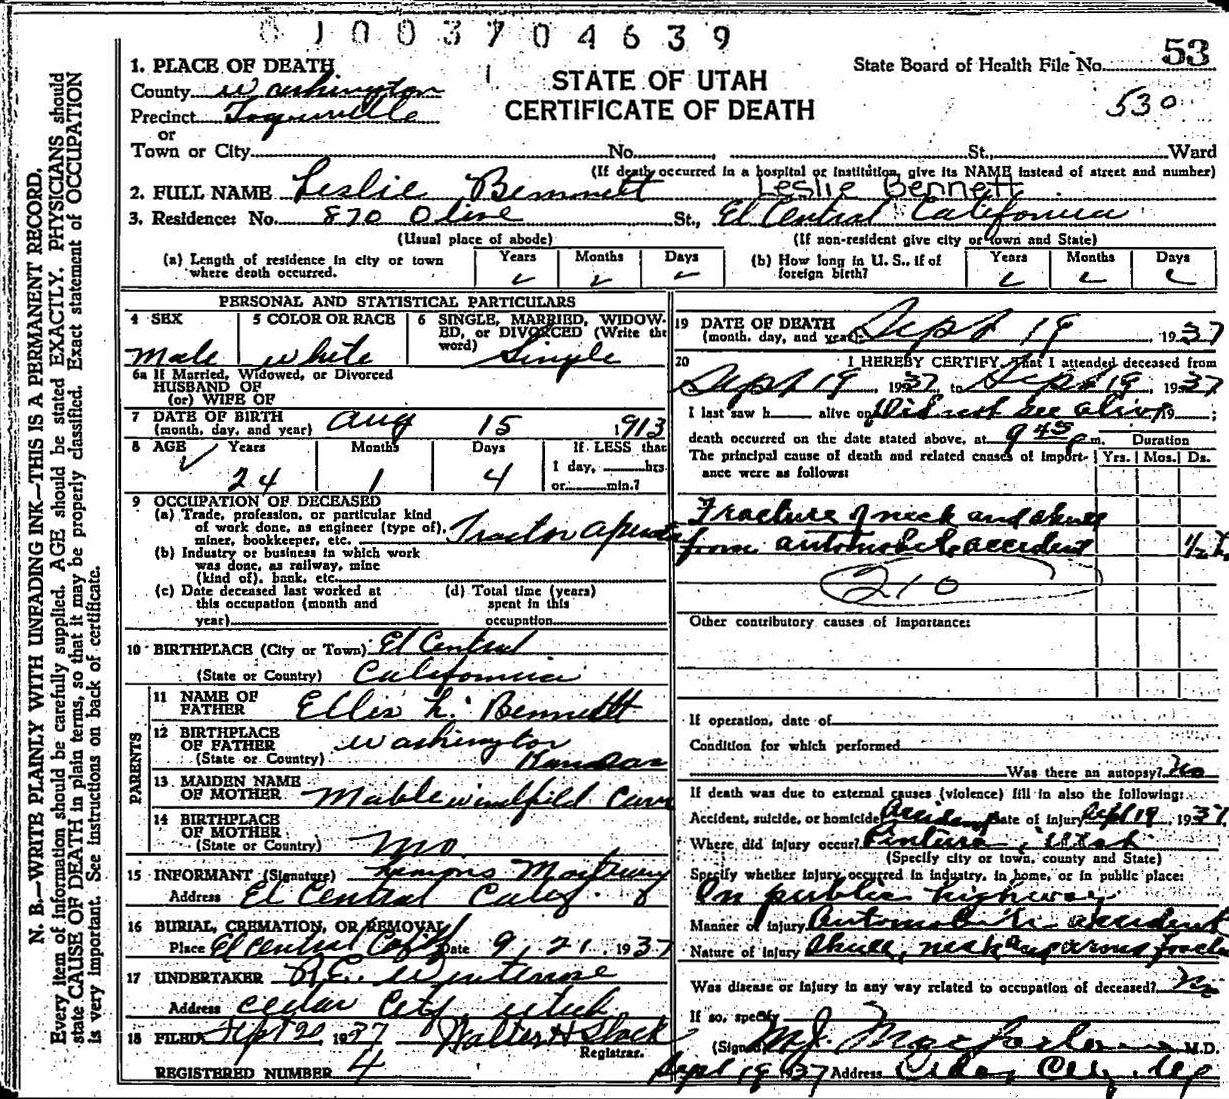 0 1 0 0 3 7 0 4 6 3 9
State Board of Health File No. 53
STATE OF UTAH
CERTIFICATE OF DEATH
530
1. PLACE OF DEATH
County Washington
Precinct Toquerville
or
Town or City No. St., Ward
(If death occurred in a hospital or institution, give its NAME instead of street and number)
2. FULL NAME Leslie Bennett Leslie Bennett
3. Residence: No. 870 Olive St., El Central California
(Usual place of abode) (If non-resident give city or town and State)
(a) Length of residence in city or town where death occurred. Years Months Days
(b) How long in U. S., if of foreign birth? Years Months Days
PERSONAL AND STATISTICAL PARTICULARS
4 SEX Male
5 COLOR OR RACE white
6 SINGLE, MARRIED, WIDOWED, or DIVORCED (Write the word) Single
6a If Married, Widowed, or Divorced
HUSBAND OF
(or) WIFE OF
7 DATE OF BIRTH (month, day, and year) Aug 15 1913
8 AGE Years 24 Months 1 Days 4 If LESS than 1 day, hrs. or min.?
9 OCCUPATION OF DECEASED
(a) Trade, profession, or particular kind
of work done, as engineer (type of),
miner, bookkeeper, etc. Tractor
(b) Industry or business in which work
was done, as railway, mine
(kind of), bank, etc.
(c) Date deceased last worked at
this occupation (month and
year)
(d) Total time (years)
spent in this
occupation
10 BIRTHPLACE (City or Town) El Central
(State or Country) California
PARENTS
11 NAME OF FATHER Ellis L. Bennett
12 BIRTHPLACE OF FATHER Washington
(State or Country) Kansas
13 MAIDEN NAME OF MOTHER Mable
14 BIRTHPLACE OF MOTHER
(State or Country) Mo
15 INFORMANT (Signature)
Address El Central Calif.
16 BURIAL, CREMATION, OR REMOVAL
Place El Central Calif Date 9, 21, 1937
17 UNDERTAKER
Address Cedar City Utah
18 FILED Sept 20 1937 Walter H Slack
Registrar.
REGISTERED NUMBER 4
19 DATE OF DEATH (month, day, and year) Sept 19 1937
20 I HEREBY CERTIFY, That I attended deceased from
Sept 19, 1937, to Sept 19, 1937
I last saw h alive on Did not see alive 19 ;
death occurred on the date stated above, at 9 45 p m. Duration
The principal cause of death and related causes of importance were as follows: Yrs. Mos. Ds.
Fracture of neck and skull
from automobile accident 1/2
210
Other contributory causes of importance:
If operation, date of
Condition for which performed
Was there an autopsy? No
If death was due to external causes (violence) fill in also the following:
Accident, suicide, or homicide Accident Date of injury Sept 19 1937
Where did injury occur? Pintura, Utah
(Specify city or town, county and State)
Specify whether injury occurred in industry, in home, or in public place:
On public highway
Manner of injury Automobile accident
Nature of injury Skull, neck
Was disease or injury in any way related to occupation of deceased? No
If so, specify
(Signed) M.J. Macfarlane M.D.
Sept 19 37 Address Cedar City, Ut
N. B.—WRITE PLAINLY WITH UNFADING INK—THIS IS A PERMANENT RECORD.
Every item of information should be carefully supplied. AGE should be stated EXACTLY. PHYSICIANS should
state CAUSE OF DEATH in plain terms, so that it may be properly classified. Exact statement of OCCUPATION
is very important. See instructions on back of certificate.